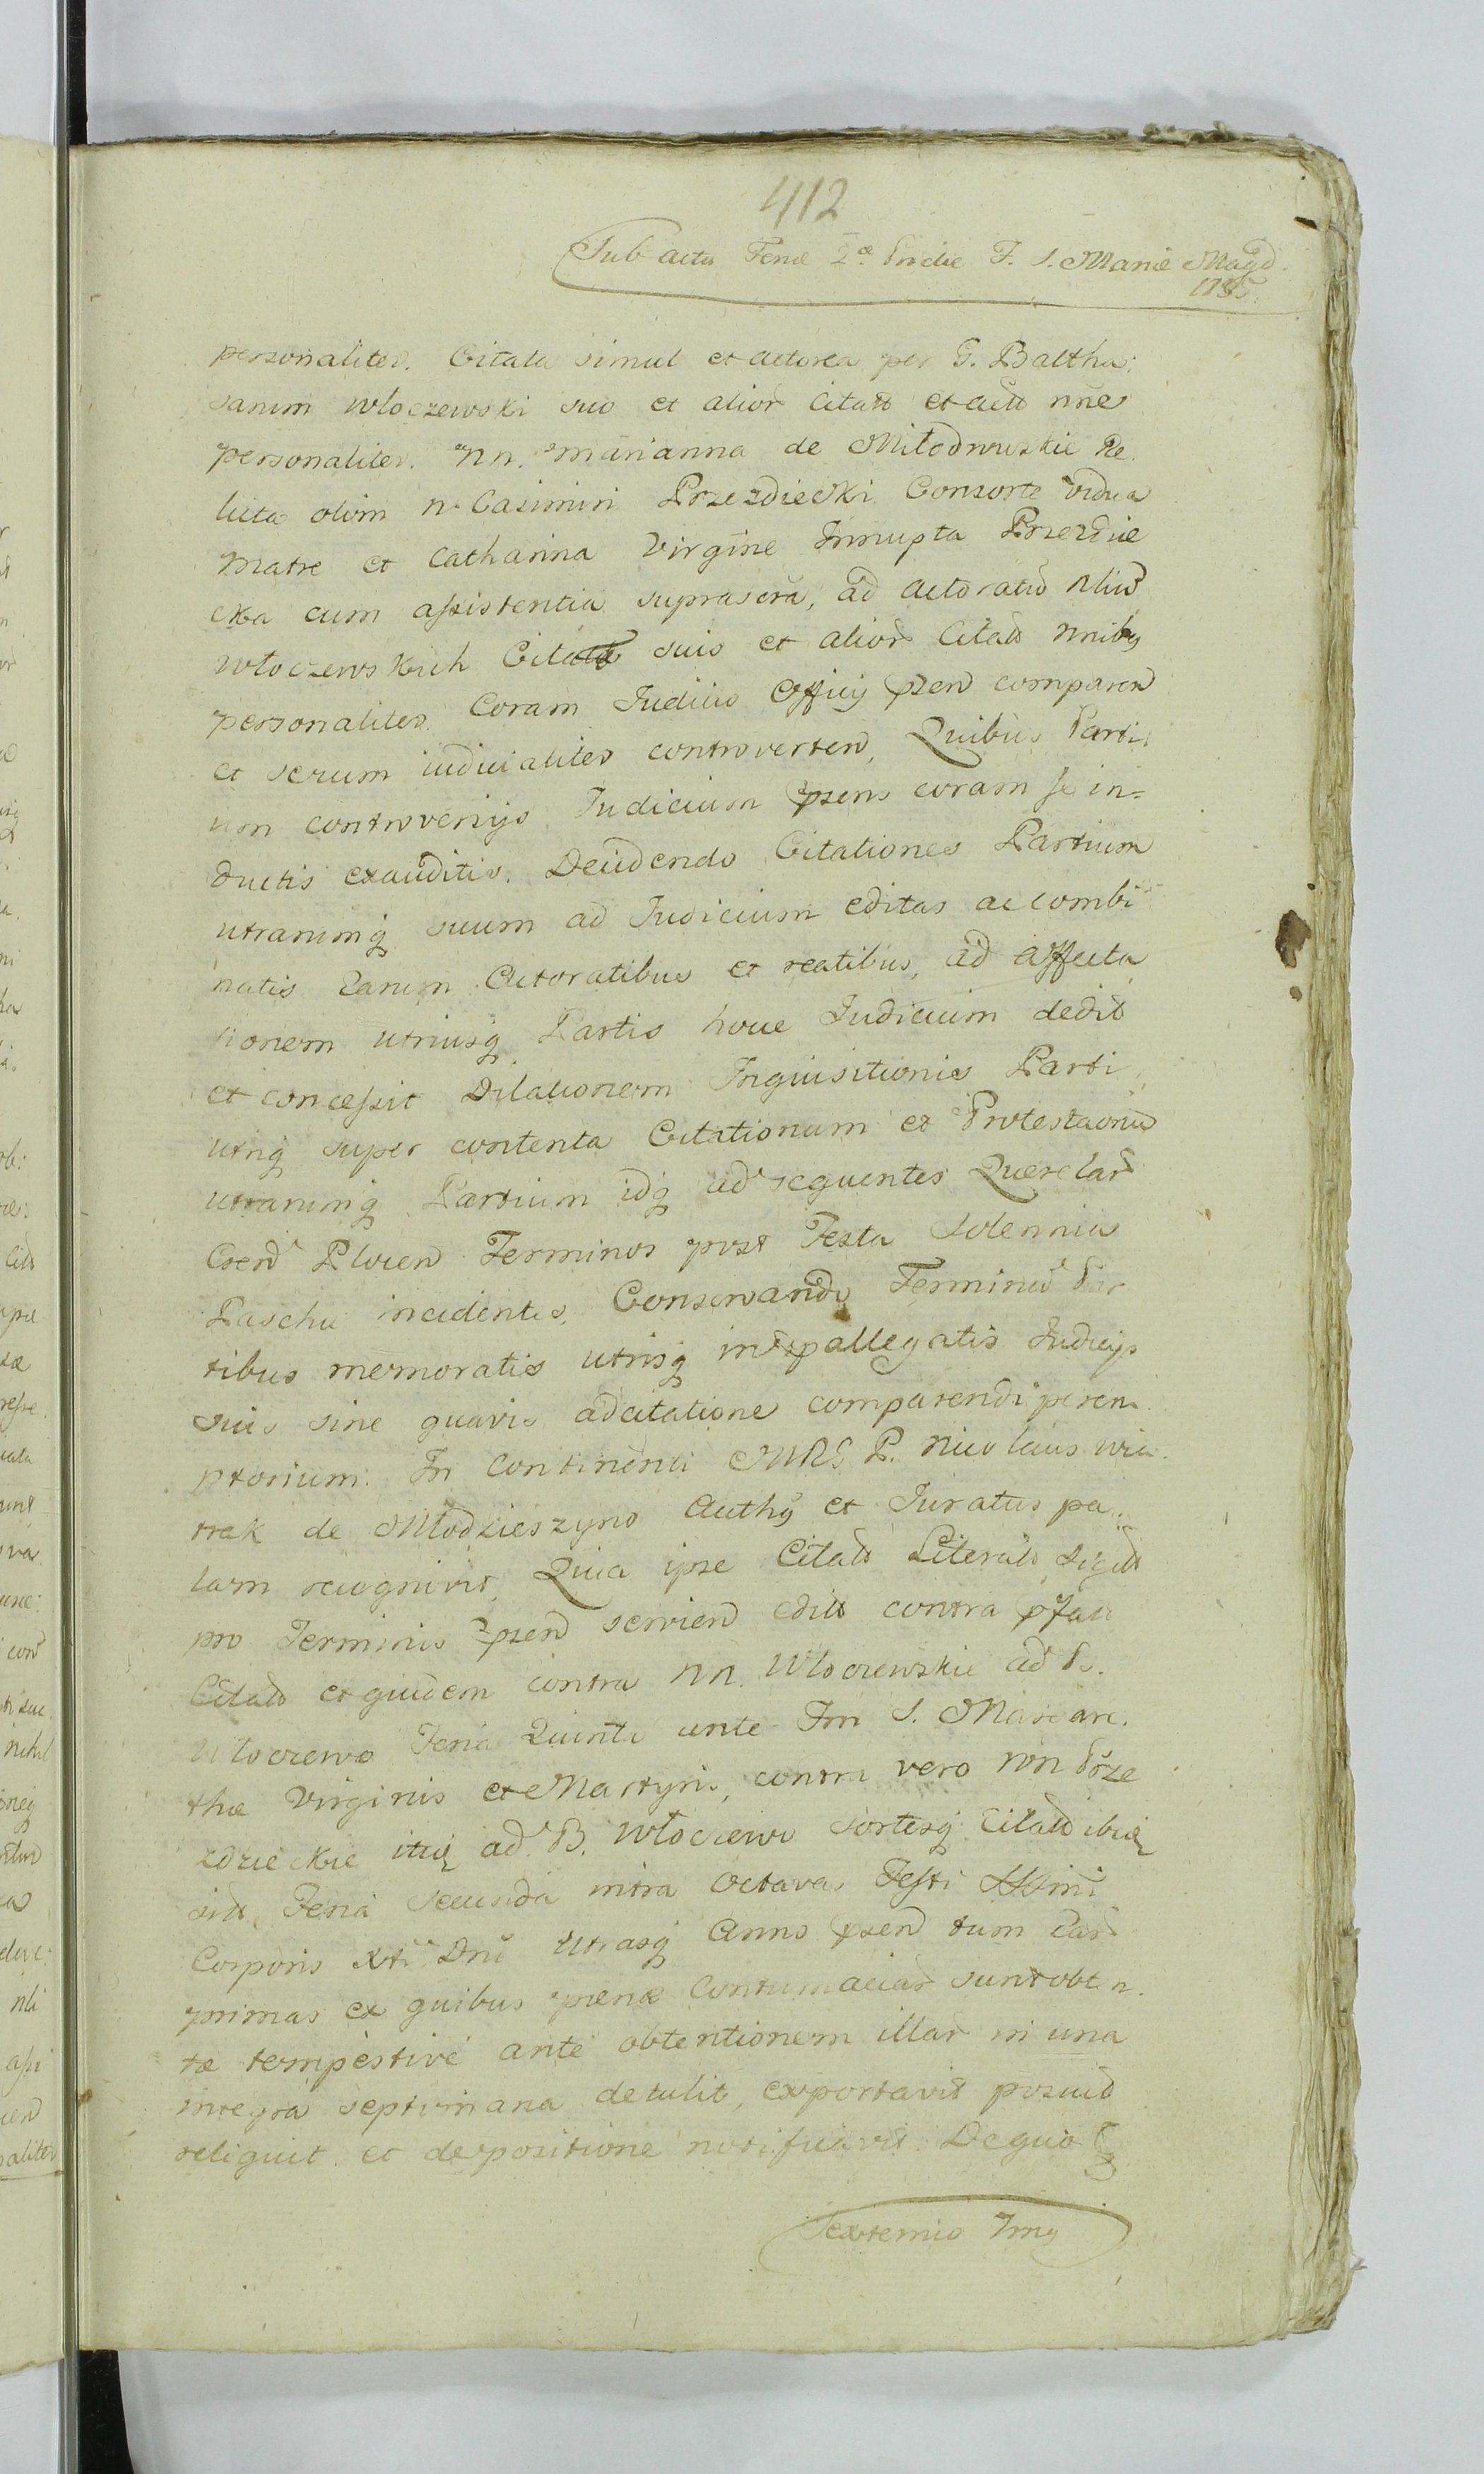 412
Sub actu Feriæ 2æ Pridie F. S. Mariæ Magd.
1785
personaliter. Citata simul et actorea per G. Baltha:
sarum Włoczewski suo et alior Citatt et actt nne
personaliter. NN. Marianna de Miłodrowskie Re
licta olim N. Casimiri Przezdziecki Consorte vidua
Matre et Catharina Virgine Innupta Przezdzie
cka cum assistentia suprascra, ad actoratu NNiu
Włoczewskich Citatt suis et alior Citatt nnibq
personaliter. Coram Judicio Officij psen comparen
et rerum iudicialiter controverten, Quibus Parti
um controversijs Judicium psens coram se in=
ductis exauditis. Decidendo Citationes Partium
utrarumq suum ad Judicium editas ac combi
natis Earum Actoratibus et reatibus, ad affecta
tionem utriusq Partis hocce Judicium dedit
et concessit Dilationem Inquisitionis Parti
utriq super contenta Citationum et Protestaonu
utrarumq Partium idq ad sequentes Querelar
Cren Plocen Terminos post Festa Solennia
Paschæ incidentes, Conservando Terminu Par
tibus memoratis utrisq in spallegatis Judicijs
suis sine quavis adcitatione comparendi perem
ptorium. In Continenti MRS P. Nicolaus Wia
trak de Młodzieszyno Authq et Juratus pa
lam recognovit, Quia ipse Citatt Literatt Sigitt
pro Terminis psen servien editt contra pfatt
Citatt et quidem contra NN. Włoczewskie ad B.
Włoczewo Feria Quinta ante Fm S. Margare
thæ Virginis et Martyris, contra vero NN Prze
zdzieckie itiq ad B. Włoczewo sortesq Citatt ibiq
sitt, Feria Secunda intra Octavas Festi SSmi
Corporis Xti Dni Utrasq Anno psen tum Ear
primas ex quibus pænæ Contumaciar sunt obten
tæ tempestive ante obtentionem illar in una
integra septimana detulit, exportavit posuit
reliquit et depositione notificavit. De quo
Sexternio Imq